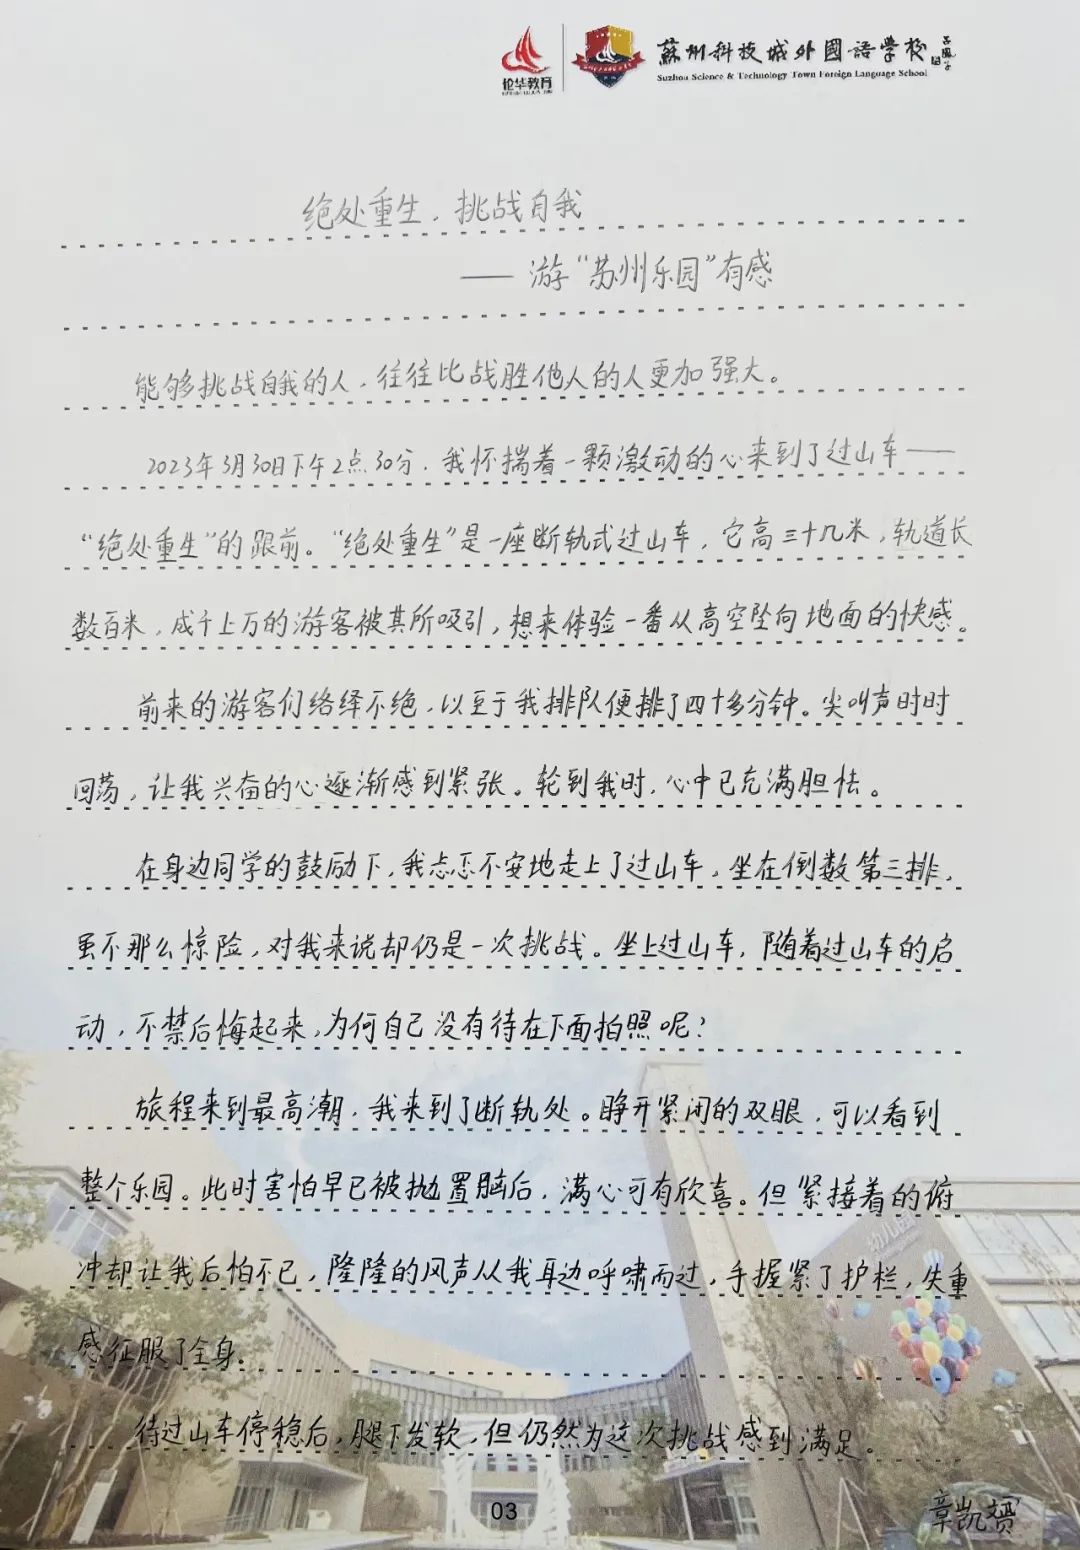 伦华教育
蘇州科技城外國語學校
Suzhou Science & Technology Town Foreign Language School
绝处重生，挑战自我
——游“苏州乐园”有感
能够挑战自我的人，往往比战胜他人的人更加强大。
2023年3月30日下午2点30分，我怀揣着一颗激动的心来到了过山车——
“绝处重生”的跟前。“绝处重生”是一座断轨式过山车，它高三十几米，轨道长
数百米，成千上万的游客被其所吸引，想来体验一番从高空坠向地面的快感。
前来的游客们络绎不绝，以至于我排队便排了四十多分钟。尖叫声时时
回荡，让我兴奋的心逐渐感到紧张。轮到我时，心中已充满胆怯。
在身边同学的鼓励下，我忐忑不安地走上了过山车，坐在倒数第三排，
虽不那么惊险，对我来说却仍是一次挑战。坐上过山车，随着过山车的启
动，不禁后悔起来，为何自己没有待在下面拍照呢？
旅程来到最高潮，我来到了断轨处。睁开紧闭的双眼，可以看到
整个乐园。此时害怕早已被抛置脑后，满心可有欣喜。但紧接着的俯
冲却让我后怕不已，隆隆的风声从我耳边呼啸而过，手握紧了护栏，失重
感征服了全身。
待过山车停稳后，腿下发软，但仍然为这次挑战感到满足。
03
章凯赟